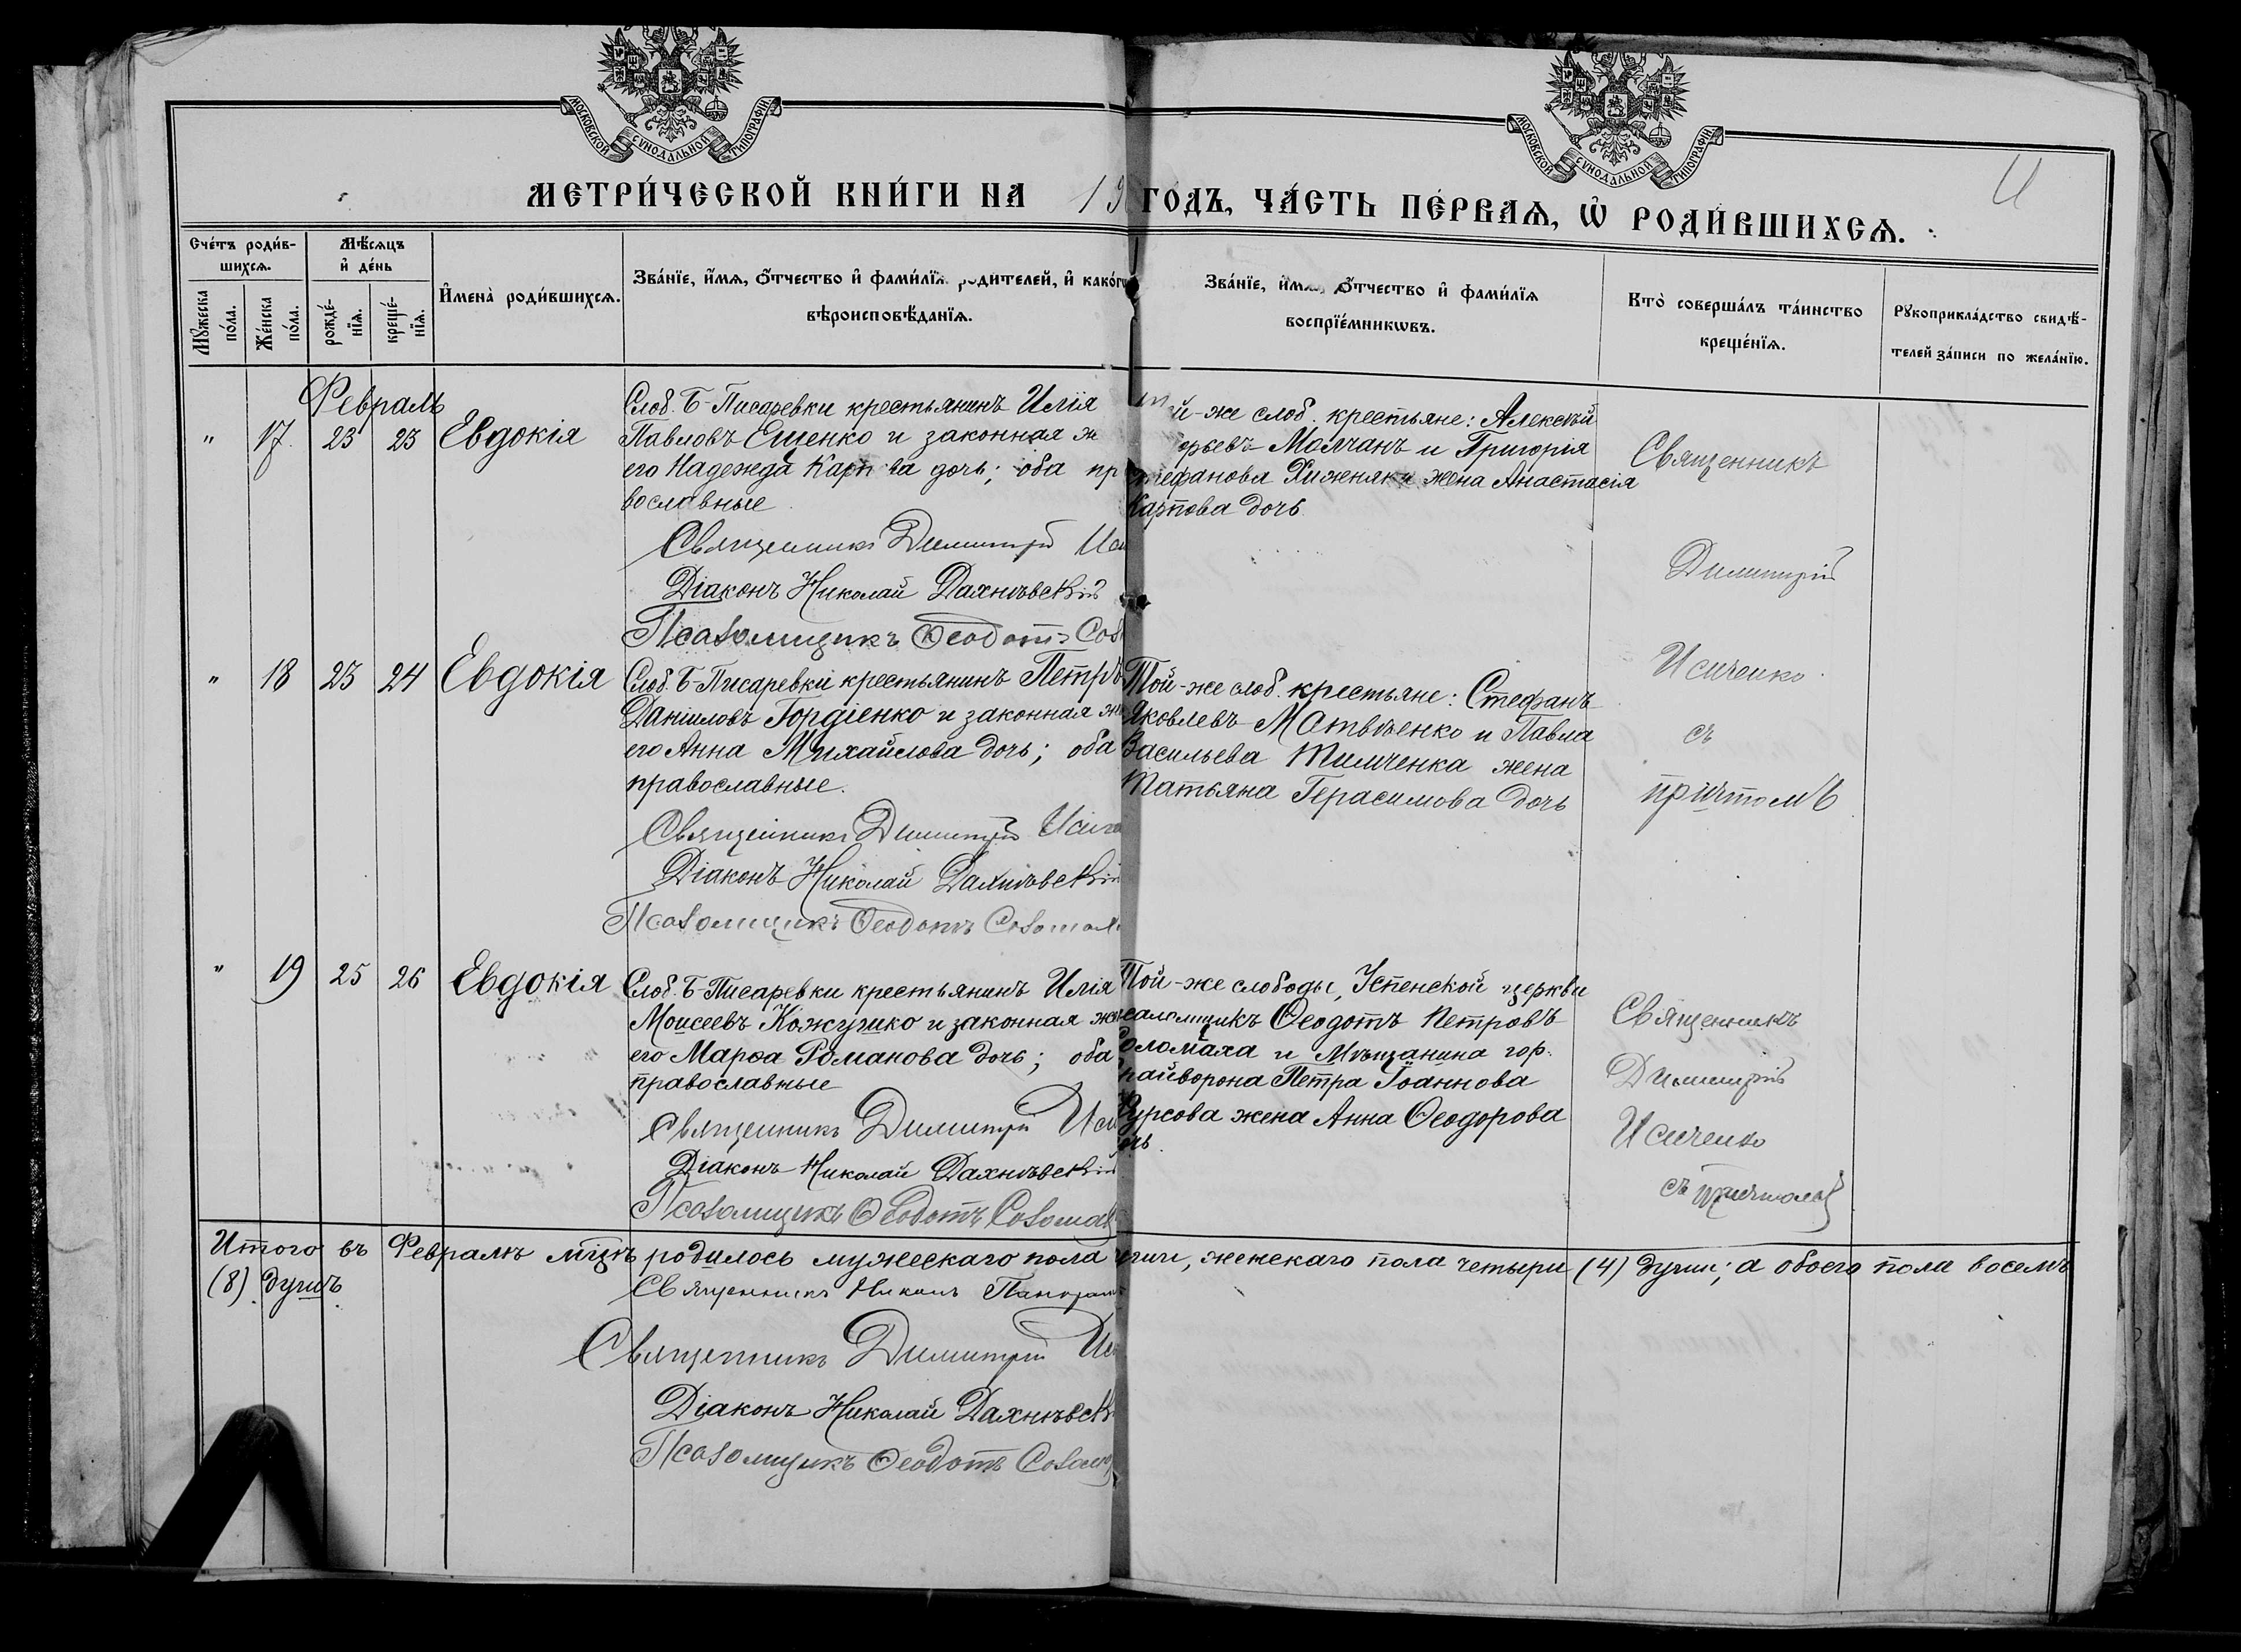 МОСКОВСКОЙ СѴНОДАЛЬНОЙ ТИПОГРАФІИ
МОСКОВСКОЙ СѴНОДАЛЬНОЙ ТИПОГРАФІИ
МЕТРИ́ЧЕСКОЙ КНИ́ГИ НА 19
ГОДЪ, ЧА́СТЬ ПЕ́РВАЯ, Ѡ РОДИ́ВШИХСЯ.
Сче́тъ роди́в-
шихся.
Мѣ́сяцъ
и де́нь
Мꙋжеска
по́ла.
Же́нска
по́ла.
рожде́-
нїя.
креще́-
нїя.
Имена̀ роди́вшихся.
Зва́нїе, и́мя, о́тчество и фами́лїя родителей, и како́гѡ
вѣроисповѣ́данїя.
Зва́нїе, и́мя, о́тчество и фами́лїя
воспрїе́мникѡвъ.
Кто̀ соверша́лъ та́инство
креще́нїя.
Рꙋкоприкла́дство свидѣ́-
телей за́писи по жела́нїю.
Февраль
" 17 23 23 Евдокія
Слоб. Б-Писаревки крестьянинъ Илія
Павловъ Ещенко и законная ж
его Надежда Карпова дочь; оба пр
вославные
Священникъ Димитрій
Діаконъ Николай Дахнѣвскій
Псаломщикъ Ѳеодотъ Сол
й-же слоб. крестьяне: Алексѣй
Молчанъ и Григорія
Стефанова Хиженяка жена Анастасія
Карпова дочь
Священникъ
Димитрій
Исиченко
съ
причтомъ
" 18 23 24 Евдокія
Слоб. Б-Писаревки крестьянинъ Петръ
Даніиловъ Гордіенко и законная же
его Анна Михайлова дочь; оба
православные.
Священникъ Димитрій Исиче
Діаконъ Николай Дахнѣвскій
Псаломщикъ Ѳеодотъ Солома
Той-же слоб. крестьяне: Стефанъ
Яковлевъ Матвѣенко и Павла
Васильева Тимченка жена
Татьяна Герасимова дочь
" 19 25 26 Евдокія
Слоб. Б-Писаревки крестьянинъ Илія
Моисеевъ Кожушко и законная же
его Марѳа Романова дочь; оба
православные
Священникъ Димитрій Иси
Діаконъ Николай Дахнѣвскій
Псаломщикъ Ѳеодотъ Солома
Той-же слободы, Успенской церкви
саломщикъ Ѳеодотъ Петровъ
Соломаха и Мѣщанина гор.
райворона Петра Іоаннова
Курсова жена Анна Ѳеодорова
чь.
Священникъ
Димитрій
Исиченко
съ причтомъ
Итого въ Февралѣ мцѣ родилось мужескаго пола женскаго пола четыри (4) души; а обоего пола восемъ
(8) душъ.
Священникъ Никонъ
Священникъ Димитрій Иси
Діаконъ Николай Дахнѣвск
Псаломщикъ Ѳеодотъ Солом